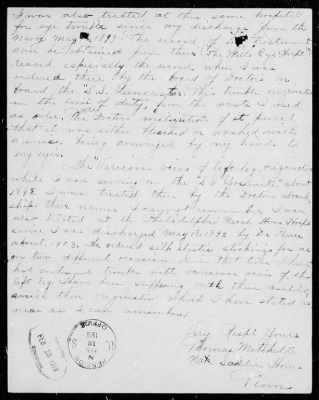 I was also treated at this same hospital
for eye trouble since my discharge from the
Navy May 1899. The record of treatment
can be obtained from the "Wills Eye Hospt"
record especially the record, when I was
ordered there by the board of Doctors on
board the "S.S. Lancaster". This trouble originated
in the line of duty, from the waste I used
as oiler. The Doctor
that it was either bleached or washed with
arsenic. Being conveyed by my hands to
my eyes.
The "Varicose veins of left leg, originated
while I was serving on the S.S. Yosemite" about
1898. I was treated there by the Doctors aboard
ship: their names I cannot remember. I was
also treated at the Philadelphia Naval Home Hospt
since I was discharged May 1899 by Dr.
about 1903. He ordered silk elastic stockings for me
on two different occasions since that time. I have
had continual trouble with varicose veins of the
left leg. I have been suffering with these disabilities
since their origination which I have stated as
near as I can remember.
Very Respt Yours
Thomas Mitchell
Nat Soldier Home
Tenn
FEB 19
PENSION OFFICE
U.S.